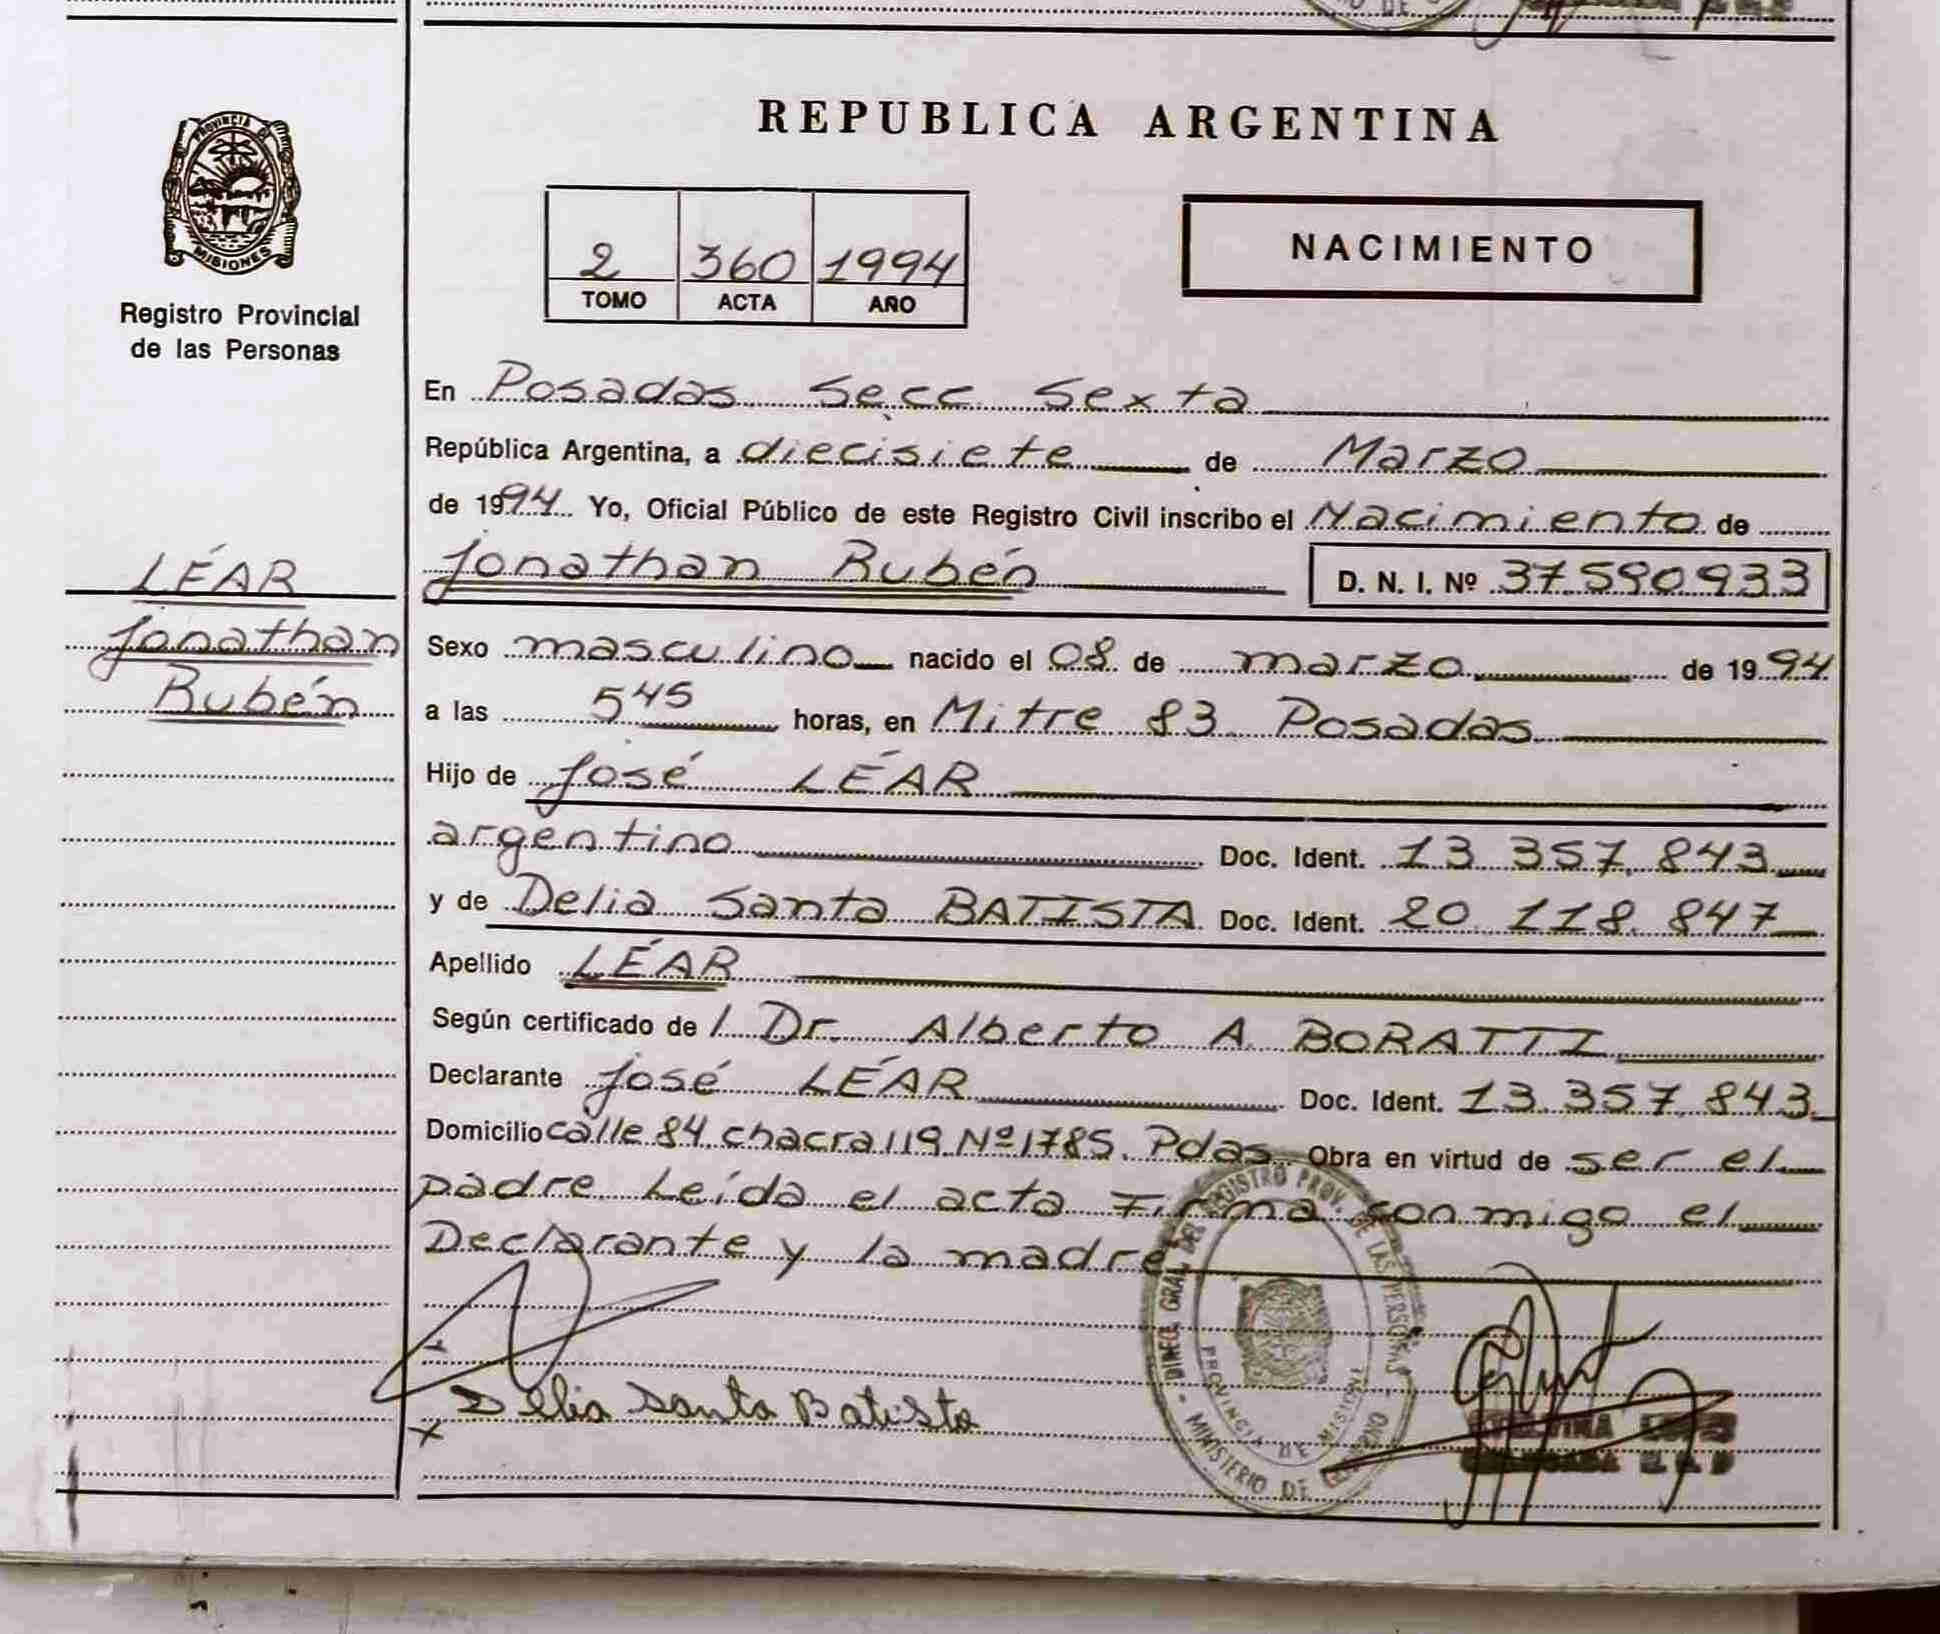 PROVINCIA DE
MISIONES
Registro Provincial
de las Personas
LÉAR
Jonathan
Rubén
REPUBLICA ARGENTINA
2 360 1994
TOMO ACTA AÑO
NACIMIENTO
En Posadas Secc. Sexta
República Argentina, a diecisiete de Marzo
de 1994 Yo, Oficial Público de este Registro Civil inscribo el Nacimiento de
Jonathan Rubén D. N. I. Nº 37.590.933
Sexo masculino nacido el 08 de marzo de 1994
a las 5 45 horas, en Mitre 83 Posadas
Hijo de José LÉAR
argentino Doc. Ident. 13.357.843
y de Delia Santa BATISTA Doc. Ident. 20.118.847
Apellido LÉAR
Según certificado de l Dr. Alberto A. BORATTI
Declarante José LÉAR Doc. Ident. 13.357.843
Domicilio calle 84 chacra 119 Nº 1785. Pdas Obra en virtud de ser el
padre Leída el acta Firma conmigo el
Declarante y la madre
Delia Santa Batista
DIREC. GRAL. DEL REGISTRO PROV. DE LAS PERSONAS
PROVINCIA DE MISIONES
MINISTERIO DE GOBIERNO